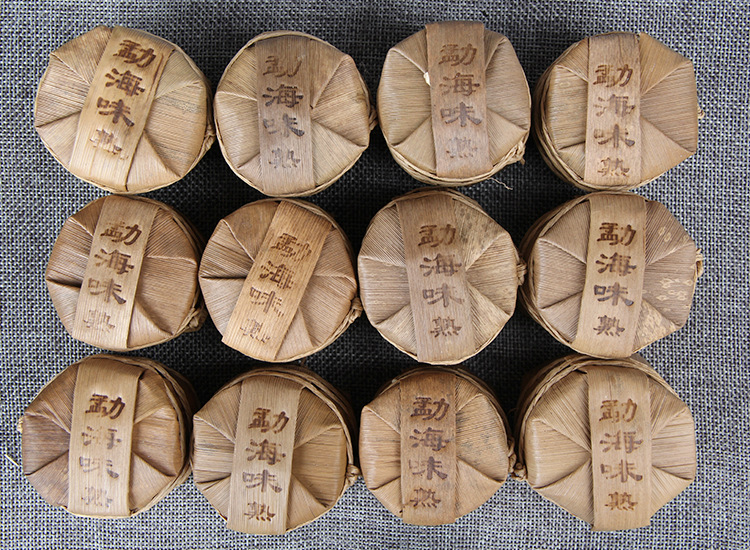 勐海味熟
勐海味熟
勐海味熟
勐海味熟
勐海味熟
勐海味熟
勐海味熟
勐海味熟
勐海味熟
勐海味熟
勐海味熟
勐海味熟